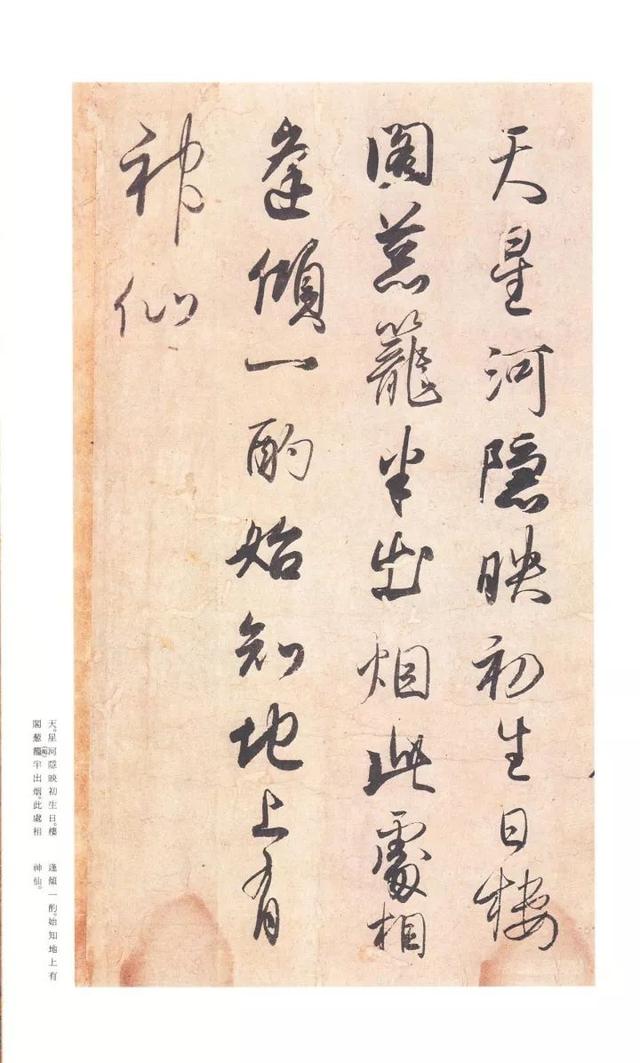 天星河隱映初生日樓
閣蔥籠半出烟此處相
逢傾一酌始知地上有
神仙
天。星河隱映初生日。樓
閣蔥籠半出烟。此處相
逢傾一酌。始知地上有
神仙。